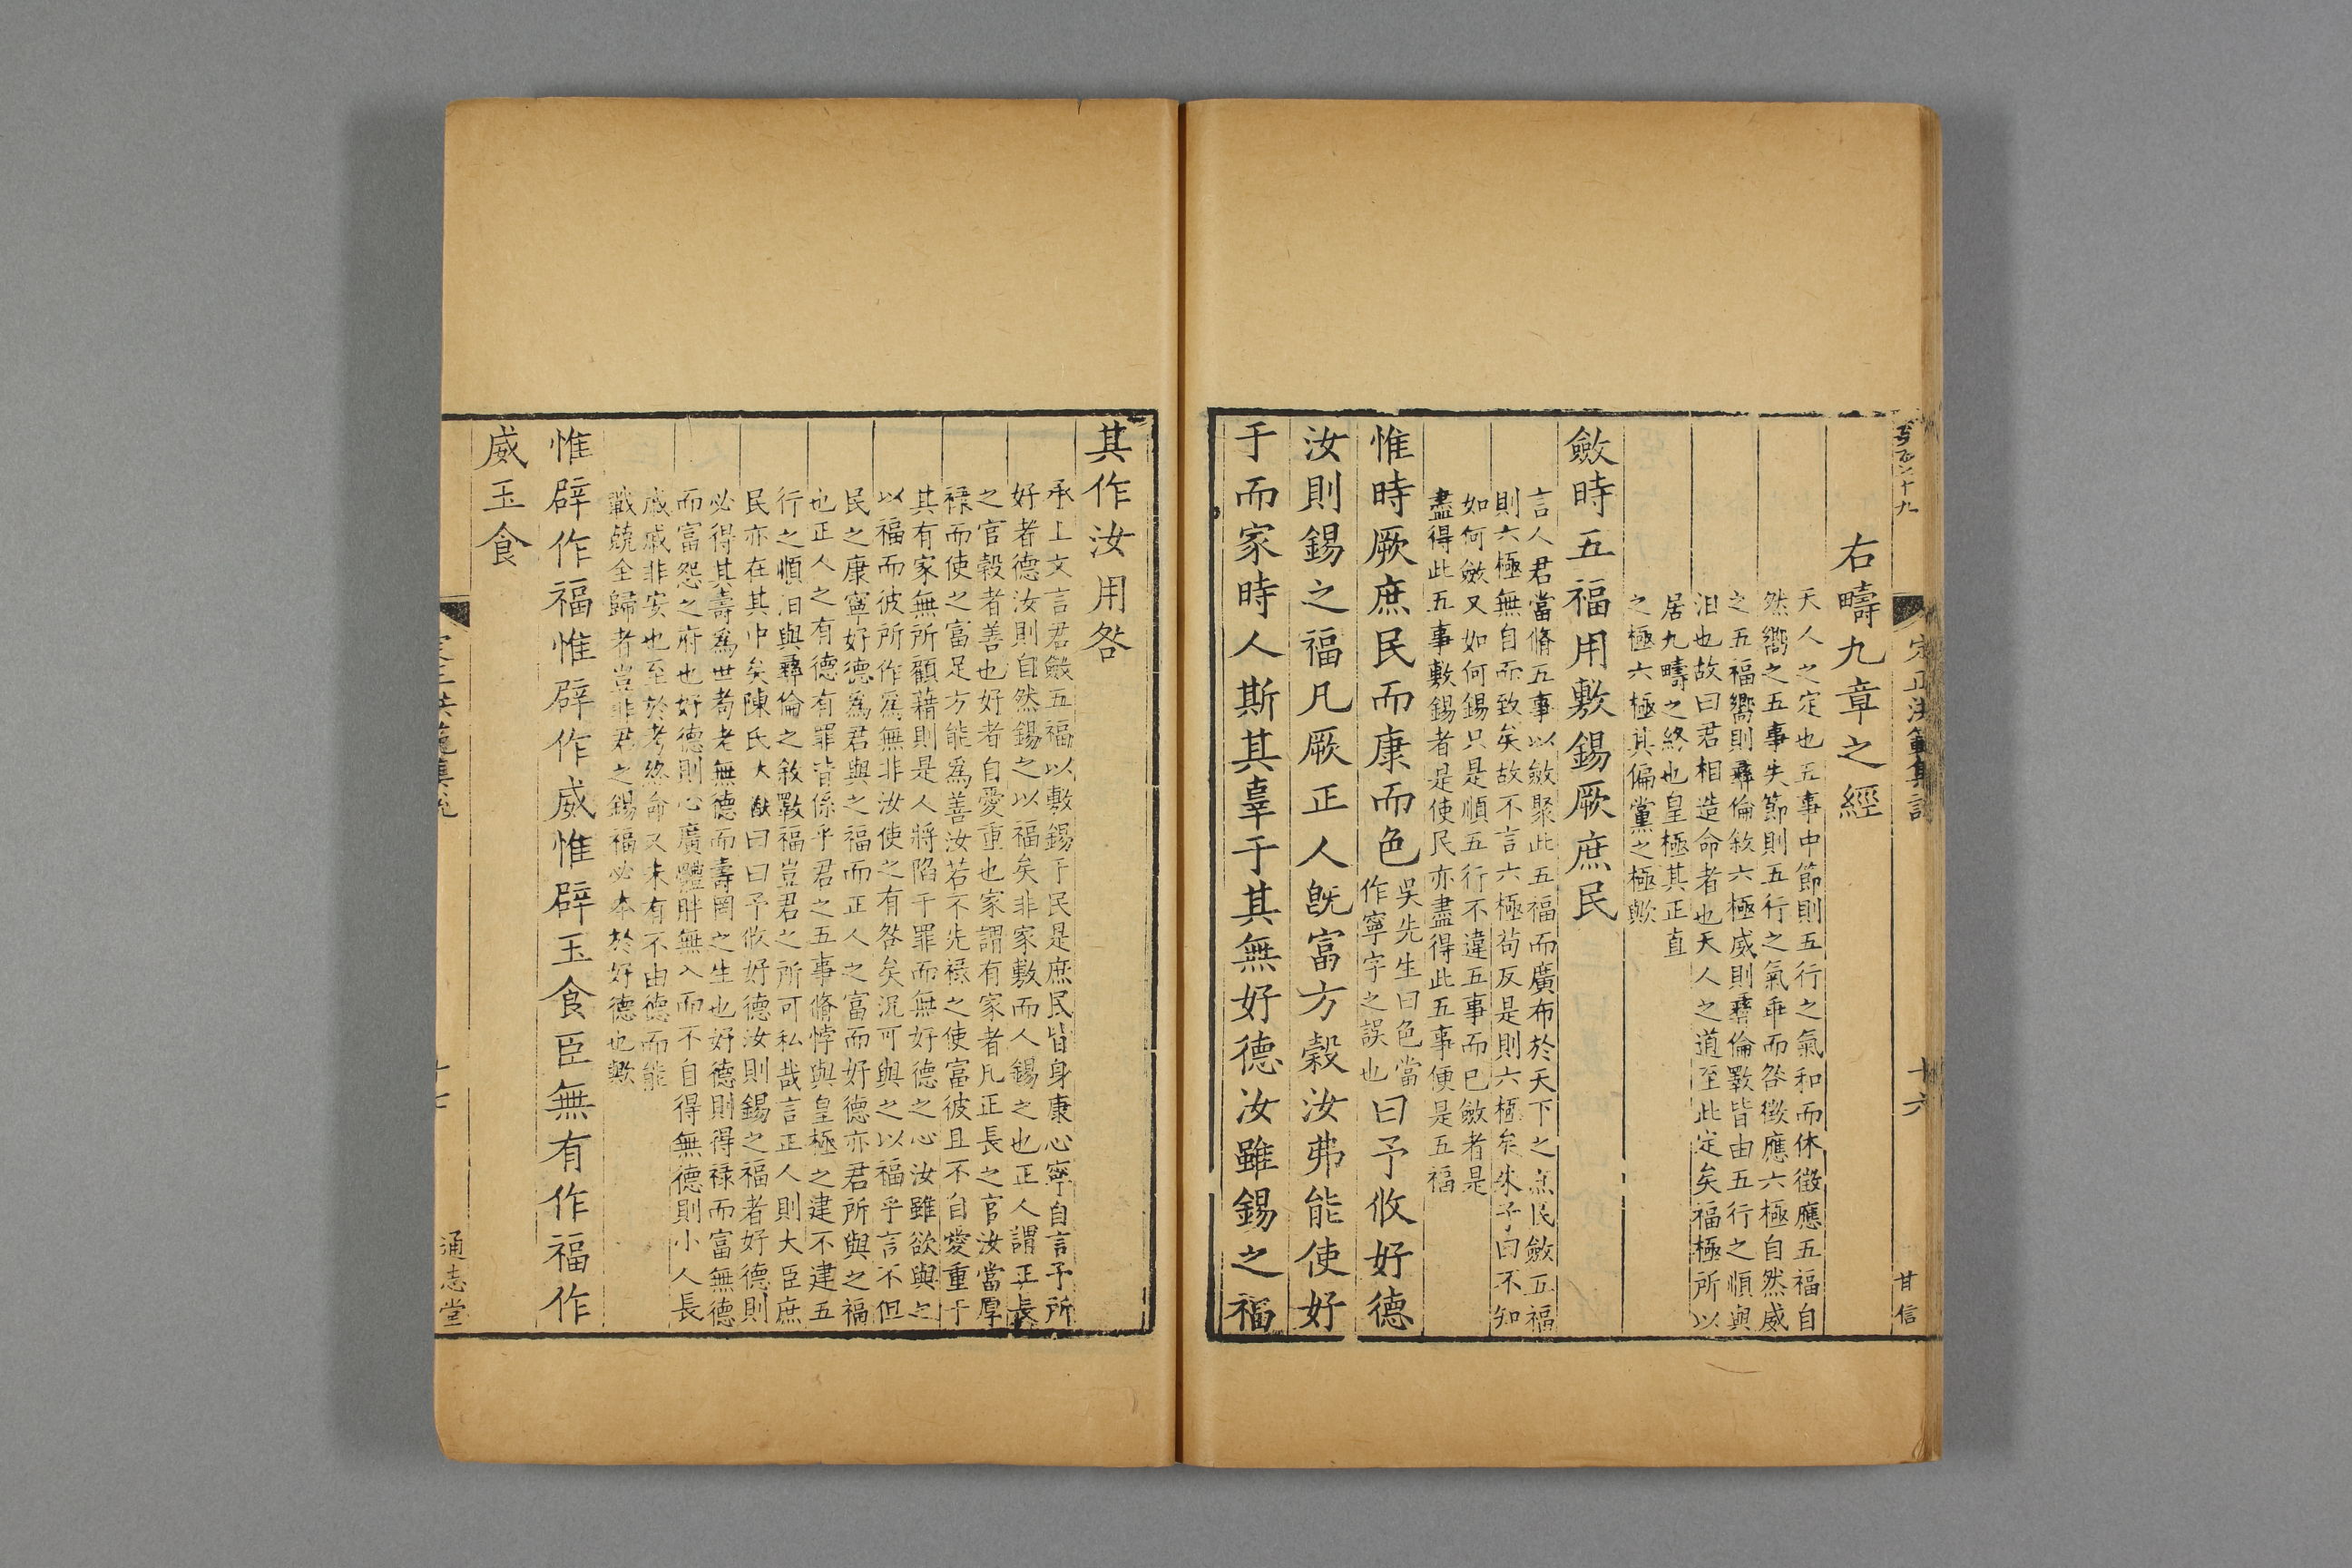 定正洪範集説
十六
甘信
右疇九章之經
天人之定也五事中節則五行之氣和而休徵應五福自
然嚮之五事失節則五行之氣乖而咎徵應六極自然威
之五福嚮則彝倫敘六極威則彝倫斁皆由五行之順與
汩也故曰君相造命者也天人之道至此定矣福極所以
居九疇之終也皇極其正直
之極六極其偏黨之極歟
斂時五福用敷錫厥庶民
言人君當脩五事以斂聚此五福而廣布於天下之庶民斂五福
則六極無自而致矣故不言六極苟反是則六極矣朱子曰不知
如何斂又如何錫只是順五行不違五事而已斂者是
盡得此五事敷錫者是使民亦盡得此五事便是五福
惟時厥庶民而康而色
吳先生曰色當
作寧字之誤也
曰予攸好德
汝則錫之福凡厥正人旣富方穀汝弗能使好
于而家時人斯其辜于其無好德汝雖錫之福
其作汝用咎
承上文言君斂五福以敷錫于民是庶民皆身康心寧自言予所
好者德汝則自然錫之以福矣非家敷而人錫之也正人謂正長
之官穀者善也好者自愛重也家謂有家者凡正長之官汝當厚
祿而使之富足方能爲善汝若不先祿之使富彼且不自愛重于
其有家無所顧藉則是人將陷于罪而無好德之心汝雖欲與之
以福而彼所作爲無非汝使之有咎矣況可與之以福乎言不但
民之康寧好德爲君與之福而正人之富而好德亦君所與之福
也正人之有德有罪皆係乎君之五事脩悖與皇極之建不建五
行之順汩與彝倫之敘斁福豈君之所可私哉言正人則大臣庶
民亦在其中矣陳氏大猷曰曰予攸好德汝則錫之福者好德則
必得其壽爲世耇老無德而壽罔之生也好德則得祿而富無德
而富怨之府也好德則心廣體胖無入而不自得無德則小人長
戚戚非安也至於考終命又未有不由德而能
戰兢全歸者豈非君之錫福必本於好德也歟
惟辟作福惟辟作威惟辟玉食臣無有作福作
威玉食
通志堂